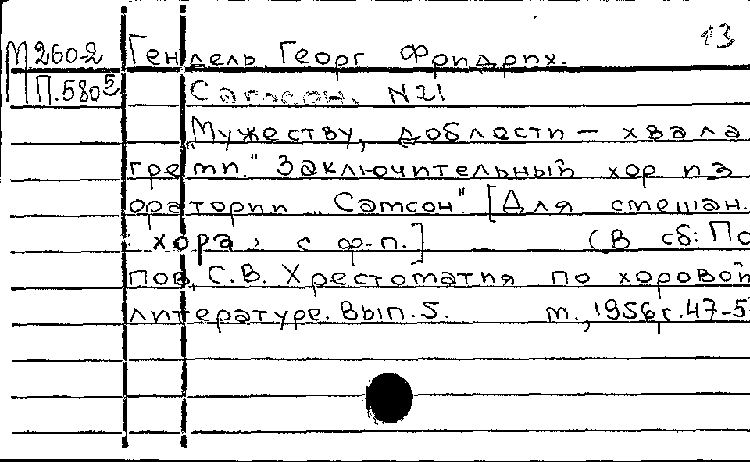 13
М 260-2 Гендель Георг Фридрих.
П.5805 Самсон. N21
„Мужеству, доблести – хвала
греми." Заключительный хор из
оратории „Самсон" [Для смешан.
хора, с ф-п.] (В сб: По
пов, С.В. Хрестоматия по хоровой
литературе. Вып. 5. м., 1956, с. 47-5